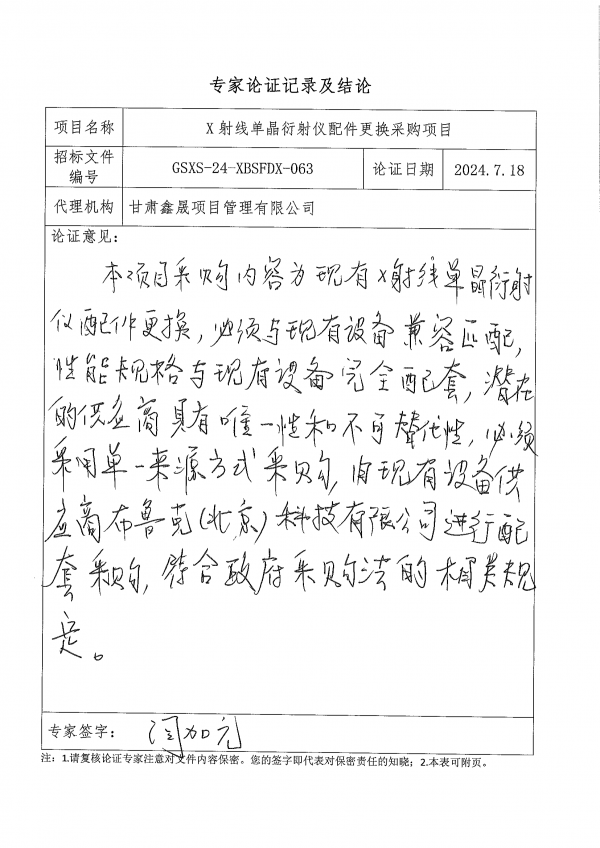 专家论证记录及结论
项目名称 X射线单晶衍射仪配件更换采购项目
招标文件编号 GSXS-24-XBSFDX-063 论证日期 2024.7.18
代理机构 甘肃鑫晟项目管理有限公司
论证意见：
本项目采购内容为现有X射线单晶衍射
仪配件更换，必须与现有设备兼容匹配，
性能规格与现有设备完全配套，潜在
的供应商具有唯一性和不可替代性，必须
采用单一来源方式采购，由现有设备供
应商布鲁克(北京)科技有限公司进行配
套采购，符合政府采购法的相关规
定。
专家签字： 闫加元
注：1.请复核论证专家注意对文件内容保密。您的签字即代表对保密责任的知晓；2.本表可附页。